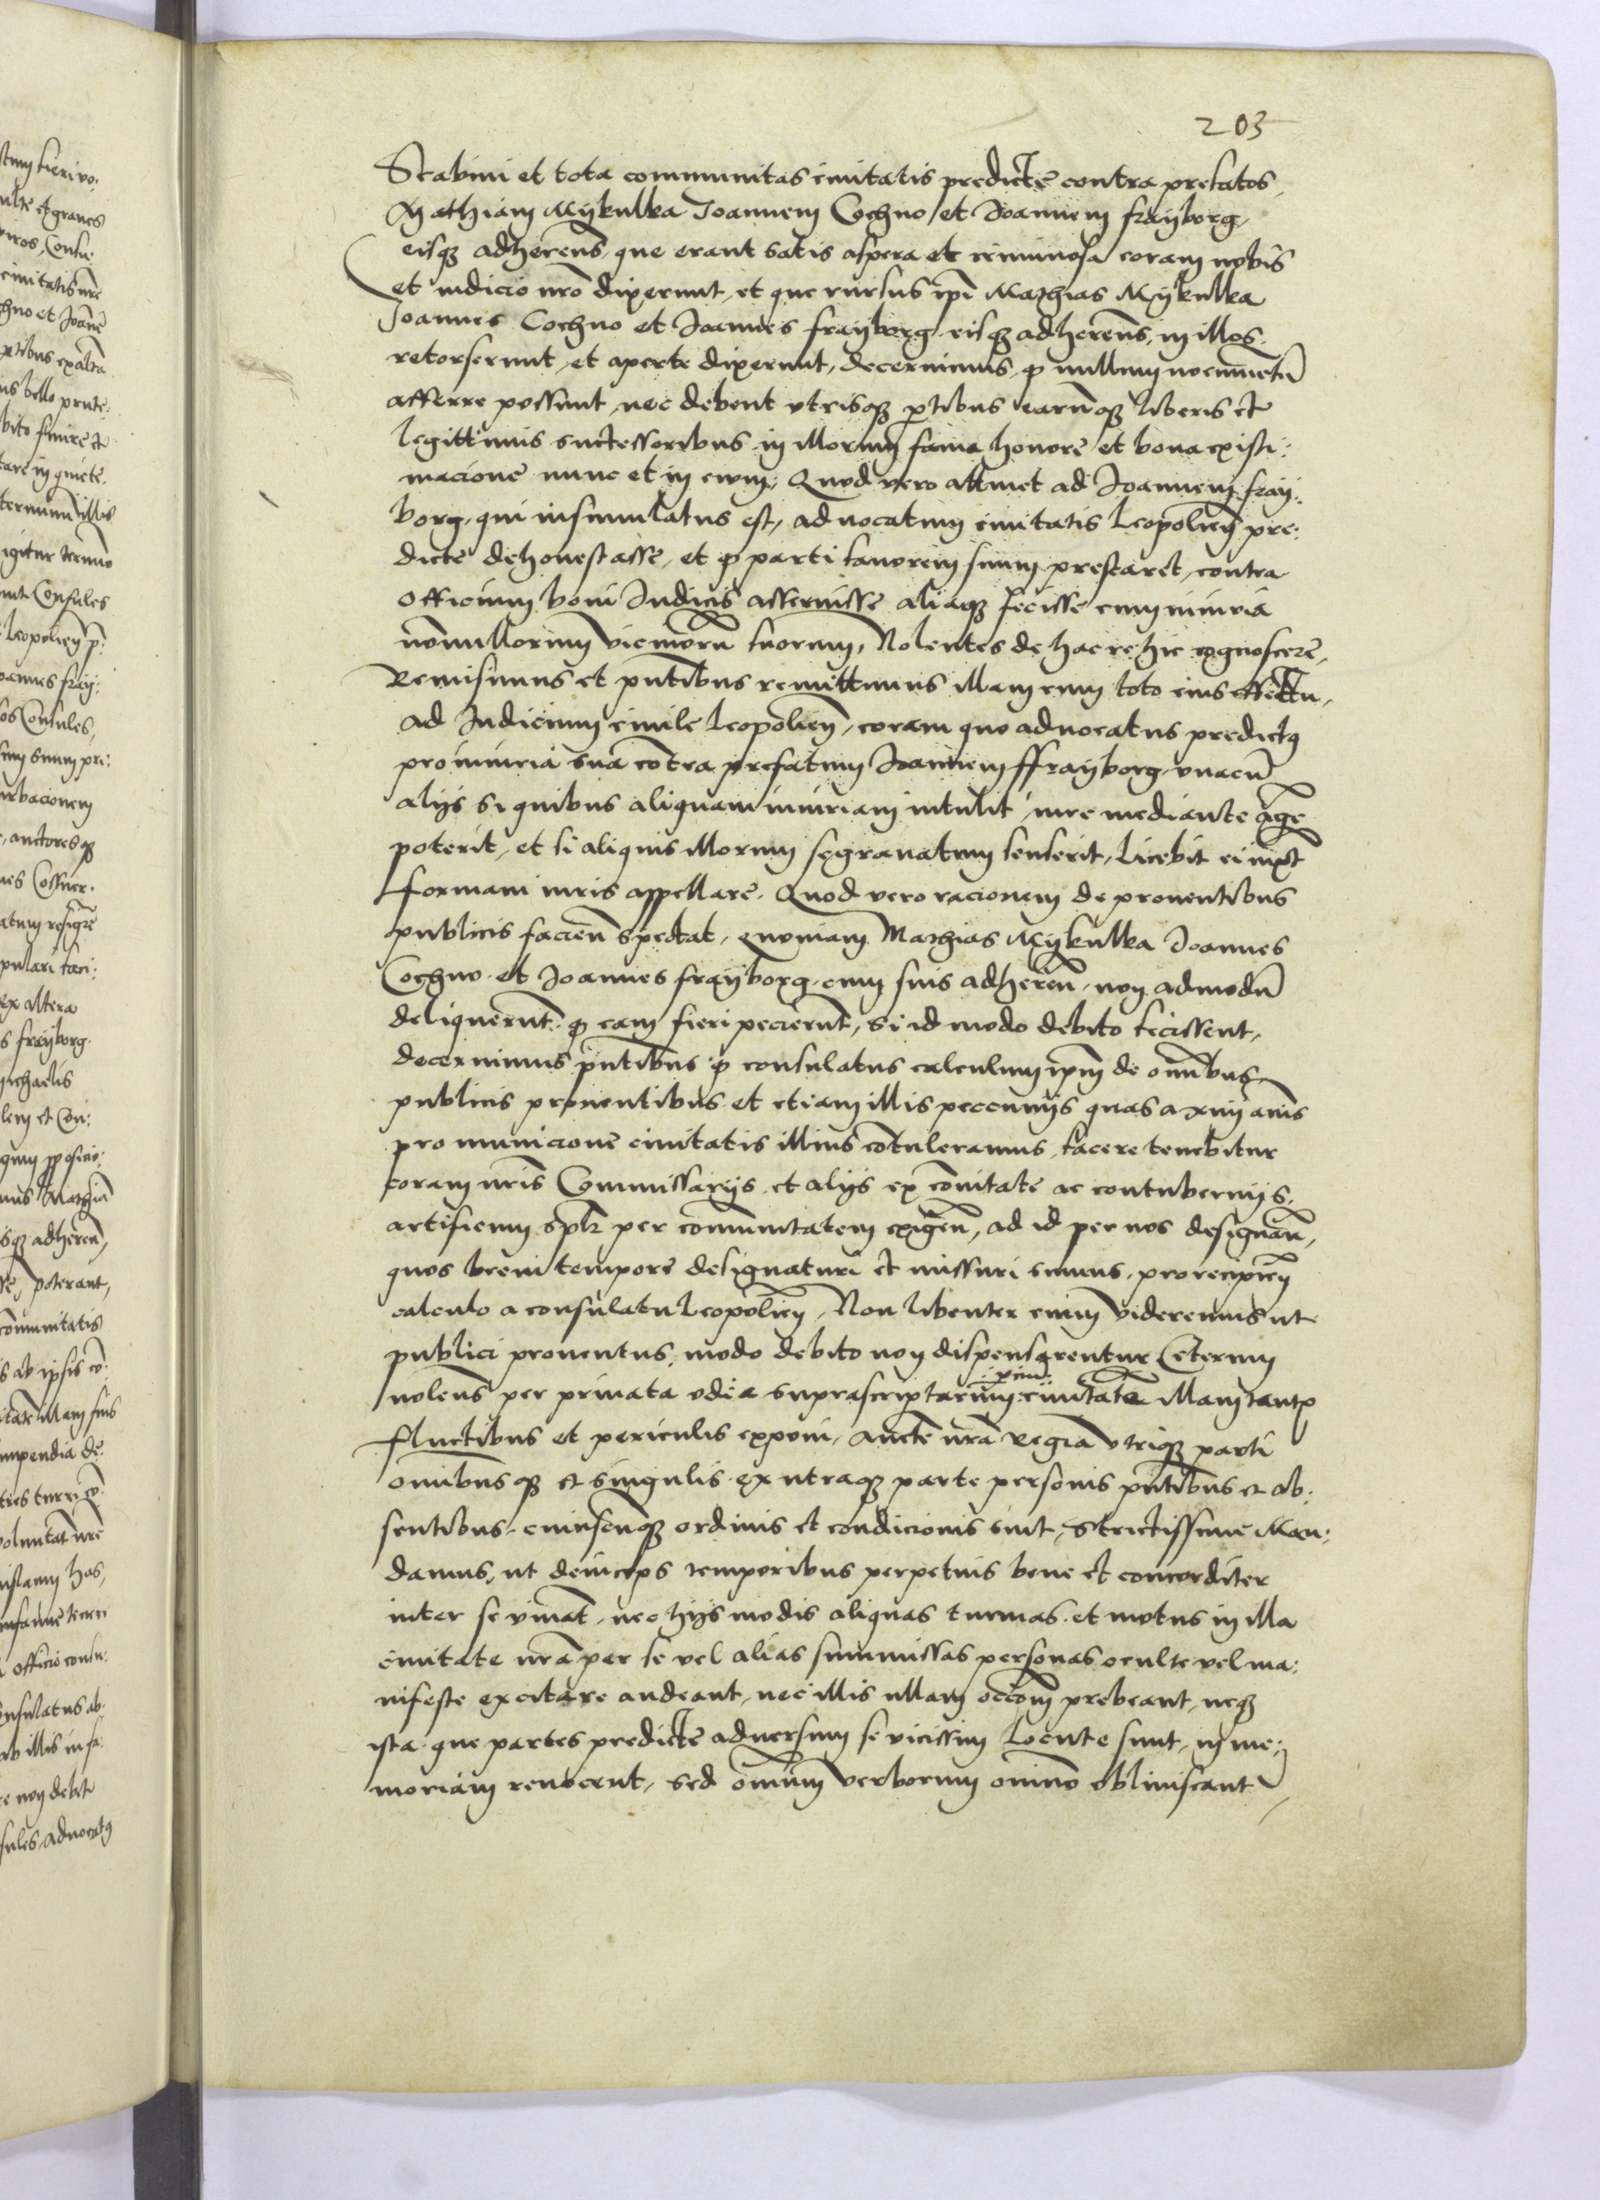 203
Scabini et tota communitas civitatis predicte contra prefatos
Mathiam Mykulka Joannem Cochno et Joannem frayborg
eisq̃ adherens̃ que erant satis aspera et criminosa coram nobis
et iudicio nr̃o dixerunt, et que rursus ip̃i Mathias Mykulka
Joannes Cochno et Joannes frayborg eisq̃ adherens̃ in illos
retorserunt, et aperte dixerunt, decernimus q̃ nullum nocumentũ
afferre possunt nec debent utrisq̃ p̃tibus earumq̃ liberis et
legittimis successoribus in illorum fama honore et bona existi:
macione nunc et in evum, Quod vero attinet ad Joannem fray:
borg, qui insimulatus est, advocatum civitatis Leopolien̄ pre:
dicte dehonestasse, et q̃ parti favorem suum prestaret, contra
officium boni Judicis asseruisse aliaq̃ fecisse cum iniuria
nonnullorum vicinorũ suorum, Nolentes de hac re hic cognoscere,
Remisimus et pñtibus remittimus illam cum toto eius effectu,
ad Judicium civile Leopolien̄, coram quo advocatus predictꝰ
pro iniuria sua cõtra prefatum Joannem ffrayborg unacũ
alijs si quibus aliquam iniuriam intulit iure mediante age
poterit, et si aliquis illorum se gravatum senserit, licebit ei iuxt
formam iuris appellare. Quod vero racionem de proventibus
publicis facien̄ spectat, quoniam Mathias Mykulka Joannes
Cochno et Joannes frayborg cum suis adheren̄ non admodũ
deliquerunt q̃ eam fieri pecierunt, si id modo debito fecissent,
decernimus pñtibus q̃ consulatus calculum ip̃m de omĩbus
publicis proventibus et etiam illis peccunijs quas a xiiij anĩs
pro municione civitatis illius cõtuleramus facere tenebitur
coram nr̃is Commissarijs et alijs ex cõitate ac contubernijs
artificum sp̃lr per communitatem exigen̄, ad id per nos designan̄,
quos brevi tempore designaturi et missuri sumus pro recipien̄
calculo a consulatu Leopolien̄, Non libenter enim videremus ut
publici proventus modo debito non dispensarentur Ceterum
nolens̃ per privata odia suprascriptarum p̃ciũ civitatẽ illam tantis
fluctibus et periculis exponi, aucte nr̃a Regia utriq̃ parti
omibusq̃ et singulis ex utraq̃ parte personis pñtibus et ab:
sentibus, cuiuscunq̃ ordinis et condicionis sint, Strictissime Man:
damus, ut deinceps temporibus perpetuis bene et concorditer
inter se vivãt, nec hijs modis aliquas turmas et motus in illa
civitate nr̃a per se vel alias summissas personas oculte vel ma:
nifeste excitare audeant, nec illis ullam occõm prebeant, neq̃
ista que partes predicte adversum se vicissim locute sunt, in me:
moriam renocent, sed omĩum verborum omĩno obliviscantr